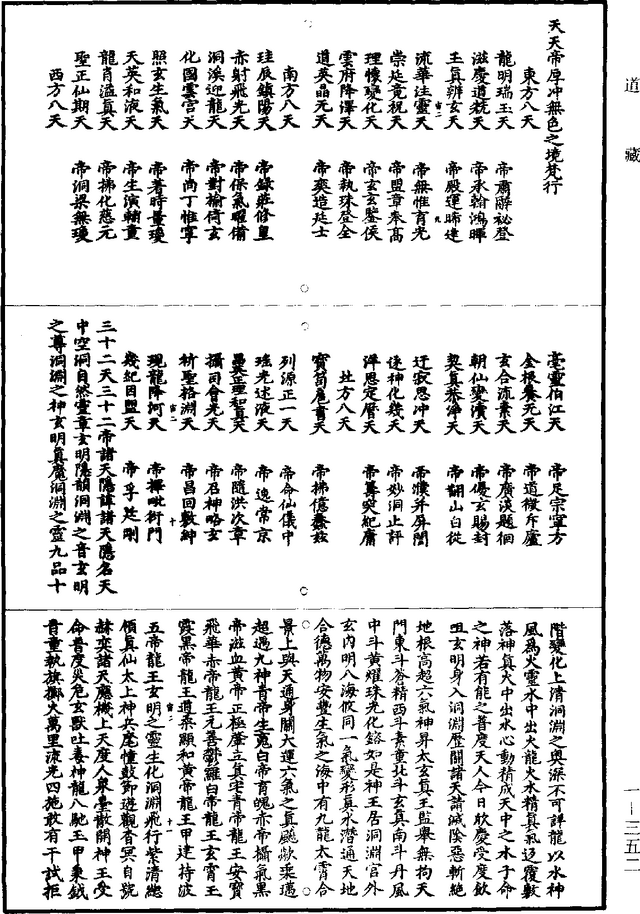 道藏
天天帝厚冲無色之境梵行
東方八天
龍明瑞玉天 帝肅辭祕登
滋慶道兢天 帝承翰鴻暉
玉真辨玄天 帝殿運晞達
流華注靈天 帝無惟育光
崇延竟祝天 帝盟章奉高
理懷變化天 帝玄玄鑒侯
雲府降澤天 帝執珠登全
道英晶元天 帝奭造延士
南方八天
珪辰鎮陽天 帝錄莊修皇
赤射飛光天 帝保氣曜備
洞溪迎龍天 帝對榆倚玄
化圓雲宮天 帝尚丁惟寧
照玄生氣天 帝者時量瓊
天英和液天 帝生演輔童
龍肖溫真天 帝拂化慈元
聖正仙期天 帝洞梁無瓊
西方八天
毫靈怕江天 帝足宗寧方
金根養元天 帝道微斥廬
玄合流素天 帝廣淡題徊
朝仙變濆天 帝優玄賜封
契真恭淨天 帝翻山白從
迂寂思冲天 帝濮并屏閭
逮神化幾天 帝妙洞止評
渾恩定曆天 帝篝突紀庸
北方八天
寶苟扈書天 帝拂億蠢茲
列源正一天 帝命仙儀中
瑤光述液天 帝逸常京
曇正理和真天 帝隨洪次章
攝司會光天 帝召神略玄
斬聖格淵天 帝昌回敷紳
現龍降河天 帝擇毗衍門
幾紀因盟天 帝孚延剛
三十二天三十二帝諸天隱諱諸天隱名天
中空洞自然靈章玄明隱韻洞淵之音玄明
之尊洞淵之神玄明真魔洞淵之靈九品十
階變化上清洞淵之奧深不可詳龍以水神
風爲火靈水中出火龍火水精真氣返覆數
落神真火中出水心動精成天中之水于命
之神若有能之普度天人今日歡慶受度欽
咀玄明身入洞淵歷關諸天請滅除惡斬絕
地根高超六氣神昇太玄真王監舉無拘天
門東斗蒼精西斗素童北斗玄真南斗丹風
中斗黃耀珠光化鎔如是神王居洞淵宮外
玄內明八海攸同一氣變形真水潛通天地
合德萬物安豐生氣之海中有九龍太霄合
景上與天通身關大運六氣之真飈歘乘邁
超遇九神青帝生䰟白帝育魄赤帝攝氣黑
帝滋血黃帝正極肇立真宅青帝龍王安寶
飛華赤帝龍王元善鬱羅白帝龍王玄霄王
霞黑帝龍王道桑顯和黃帝龍王甲建持波
五帝龍王玄明之靈生化洞淵飛行紫清總
領真仙太上神兵麾幢鼓節遊觀杳冥自號
赫奕諸天應機上天度人衆臺散開神王受
命普度災危玄獸吐毒神龍八馳玉甲東鉞
青童執旗擲火萬里流光四施敢有干試拒
一—三五二